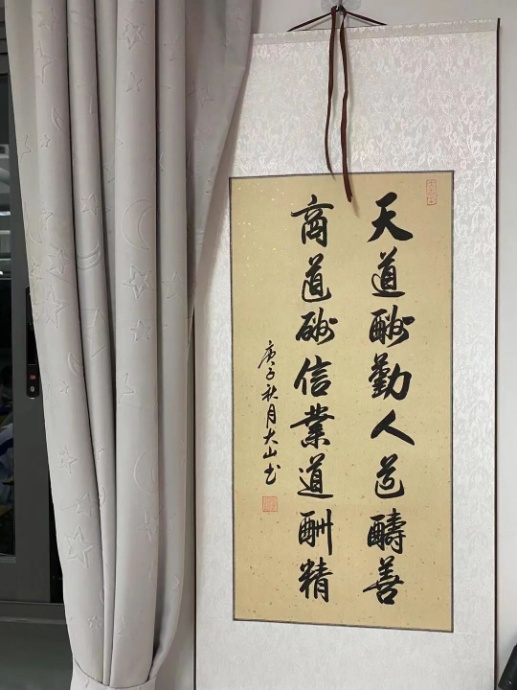 天道酬勤人道醻善
商道酬信業道酬精
庚子秋月大山书